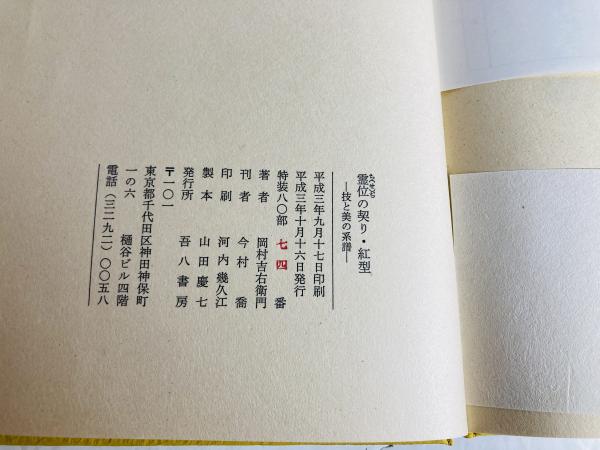 霊位の契り・紅型
―技と美の系譜―
平成三年九月十七日印刷
平成三年十月十六日発行
特装八〇部 七四 番
著者 岡村吉右衛門
刊者 今村 喬
印刷 河内幾久江
製本 山田慶七
発行所 吾八書房
〒一〇一
東京都千代田区神田神保町
一の六 樋谷ビル四階
電話(三二九二)〇〇五八